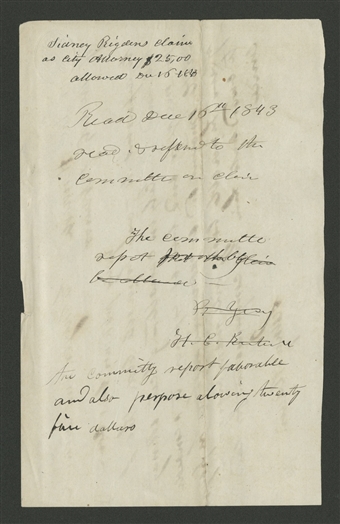 Sidney Rigdons claim
as City Attorney $25,00
allowed De 16 183
Read Dec 16th 1843
read & refered to the
Committe on claim
The committe
report
H. C.
the committy report faborable
and also perpose alowing twenty
five dollars